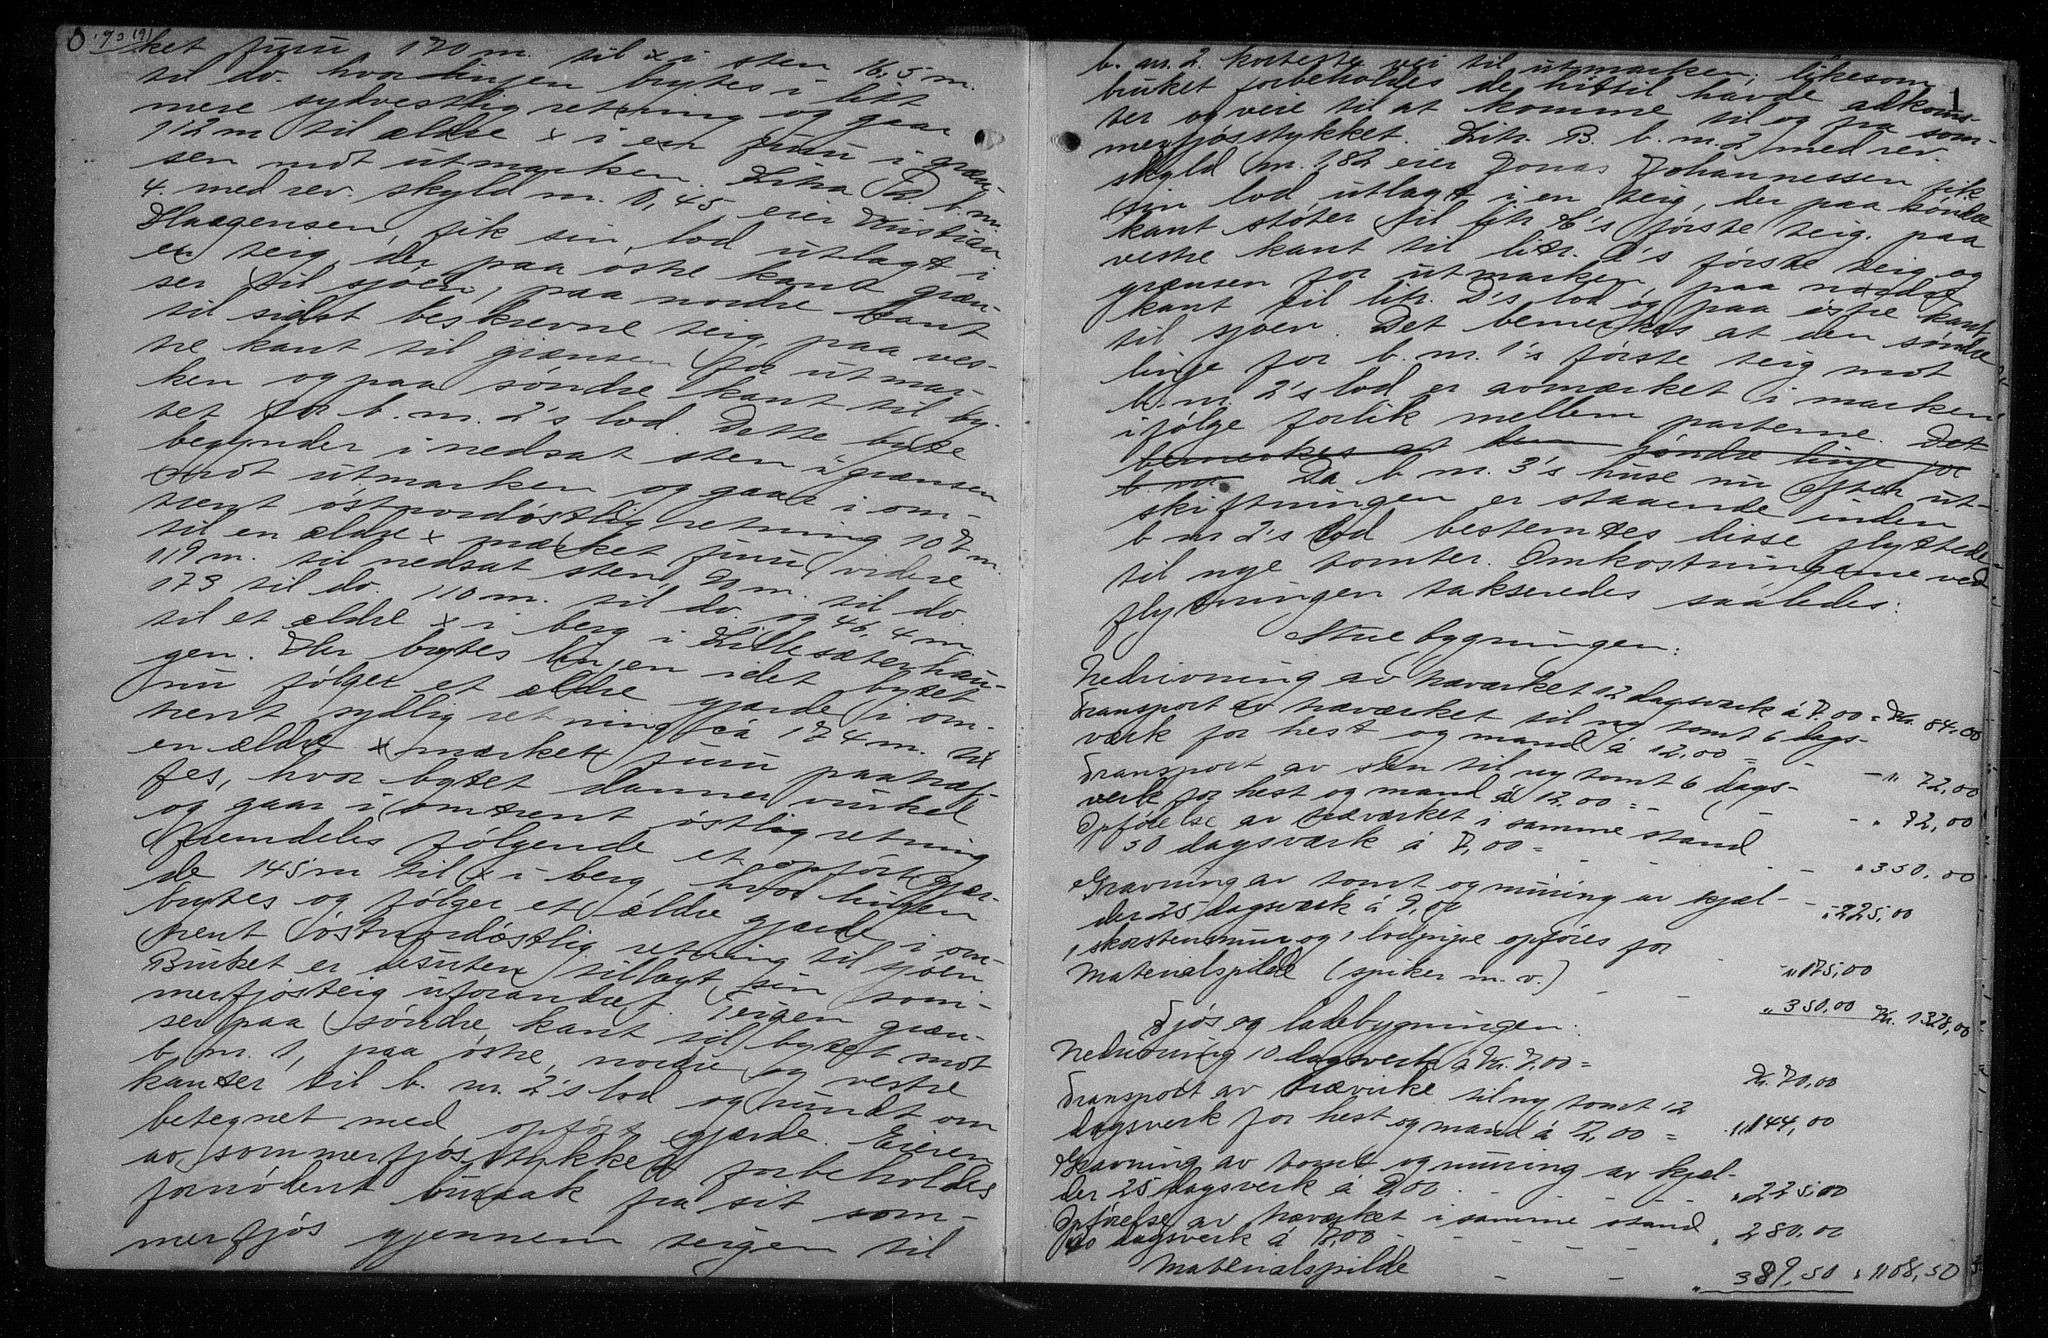 ket furu 170 m. til x i sten 16,5 m.
til do. hvor linjen brytes i litt
mere sydvestlig retning og gaar
112 m til ældre x i en furu i græn-
sen mot utmarken. Litra D b. nr.
4. med rev. skyld m. 0,45 eier Kristian
Haagensen, fik sin lod utlagt i
en teig, der paa østre kant græn-
ser til sjøen, paa nordre kant
til sidst beskrevne teig, paa ves-
tre kant til grænsen for utmar-
ken og paa søndre kant til by-
tet for b. nr. 2's lod. Dette byte
begynder i nedsat sten i grænsen
mot utmarken og gaar i om-
trent østnordøstlig retning 107 m.
til en ældre x mærket furu, videre
119 m. til nedsat sten, 71 m. til do.
173 til do. 110 m. til do. og 46,4 m
til et ældre x i berg i Lillesæterhau-
gen. Her brytes linjen idet bytet
nu følger et ældre gjærde i om-
trent sydlig retning ca 174 m. til
en ældre x mærket furu paatræf-
fes, hvor bytet danner vinkel
og gaar i omtrent østlig retning
fremdeles følgende et opført gjær-
de 145 m til x i berg, hvor linjen
brytes og følger et ældre gjærde i om-
trent østnordøstlig retning til sjøen.
Bruket er desuten tillagt sin som-
merfjøsteig uforandret. Teigen græn-
ser paa søndre kant til bytet mot
b. nr. 1, paa østre, nordre og vestre
kanter til b. nr. 2's lod og rundt om
betegnet med opført gjærde. Eieren
av sommerfjøsstykket forbeholdes
fornødent buræk fra sit som-
merfjøs gjennem teigen til
1
b. nr. 2 korteste vei til utmarken; likesom
bruket forbeholdes de hittil havde adkoms-
ter og veie til at komme til og fra som-
merfjøsstykket. Litr. B. b. nr. 2 med rev.
skyld m. 1.82 eier Jonas Johannessen fik
sin lod utlagt i en teig, der paa søndre
kant støter til litr. C's første teig, paa
vestre kant til litr. C's første teig og
grænsen for utmarken, paa nordre
kant til litr. D's lod og paa østre kant
til sjøen. Det bemerkes at den søndre
linje for b. nr. 1's første teig mot
b. nr. 2's lod er avmærket i marken
ifølge forlik mellem parterne. Det
bemerkes at den søndre linje for
b. nr. Da b. nr. 3's huse nu efter ut-
skiftningen er staaende inden
b. nr 2's lod bestemtes disse flyttede
til nye tomter. Omkostningerne ved
flytningen takseredes saaledes:
Stuebygningen:
Nedrivning av træværket 12 dagsværk á 7.00 = Kr. 84,00
Transport av træværket til ny tomt 6 dags-
værk for hest og mand á 12,00 = - - " 72,00
Transport av sten til ny tomt 6 dags-
verk for hest og mand á 12.00 = - - " 72,00
Opførelse av træværket i samme stand
50 dagsværk á 7,00 = - - - " 350,00
Gravning av tomt og muring av kjæl-
der 25 dagsværk á 9,00 - - " 225,00
1 skorstenmur og 1 bradpipe opføres for - " 175,00
Materialspilde (spiker m. v.) - - " 350,00 Kr. 1328,00
Fjøs og ladebygningen:
Nedrivning 10 dagsverk á Kr. 7,00 = Kr. 70,00
Transport av trævirke til ny tomt 12
dagsverk for hest og mand á 12,00 = " 144,00
Gravning av tomt og muring av kjæl-
der 25 dagsverk á 9,00 - - - - " 225,00
Opførelse av træværket i samme stand
40 dagsverk á 7,00 - - - - " 280,00
Materialspilde - - " 389,50 " 1108,50